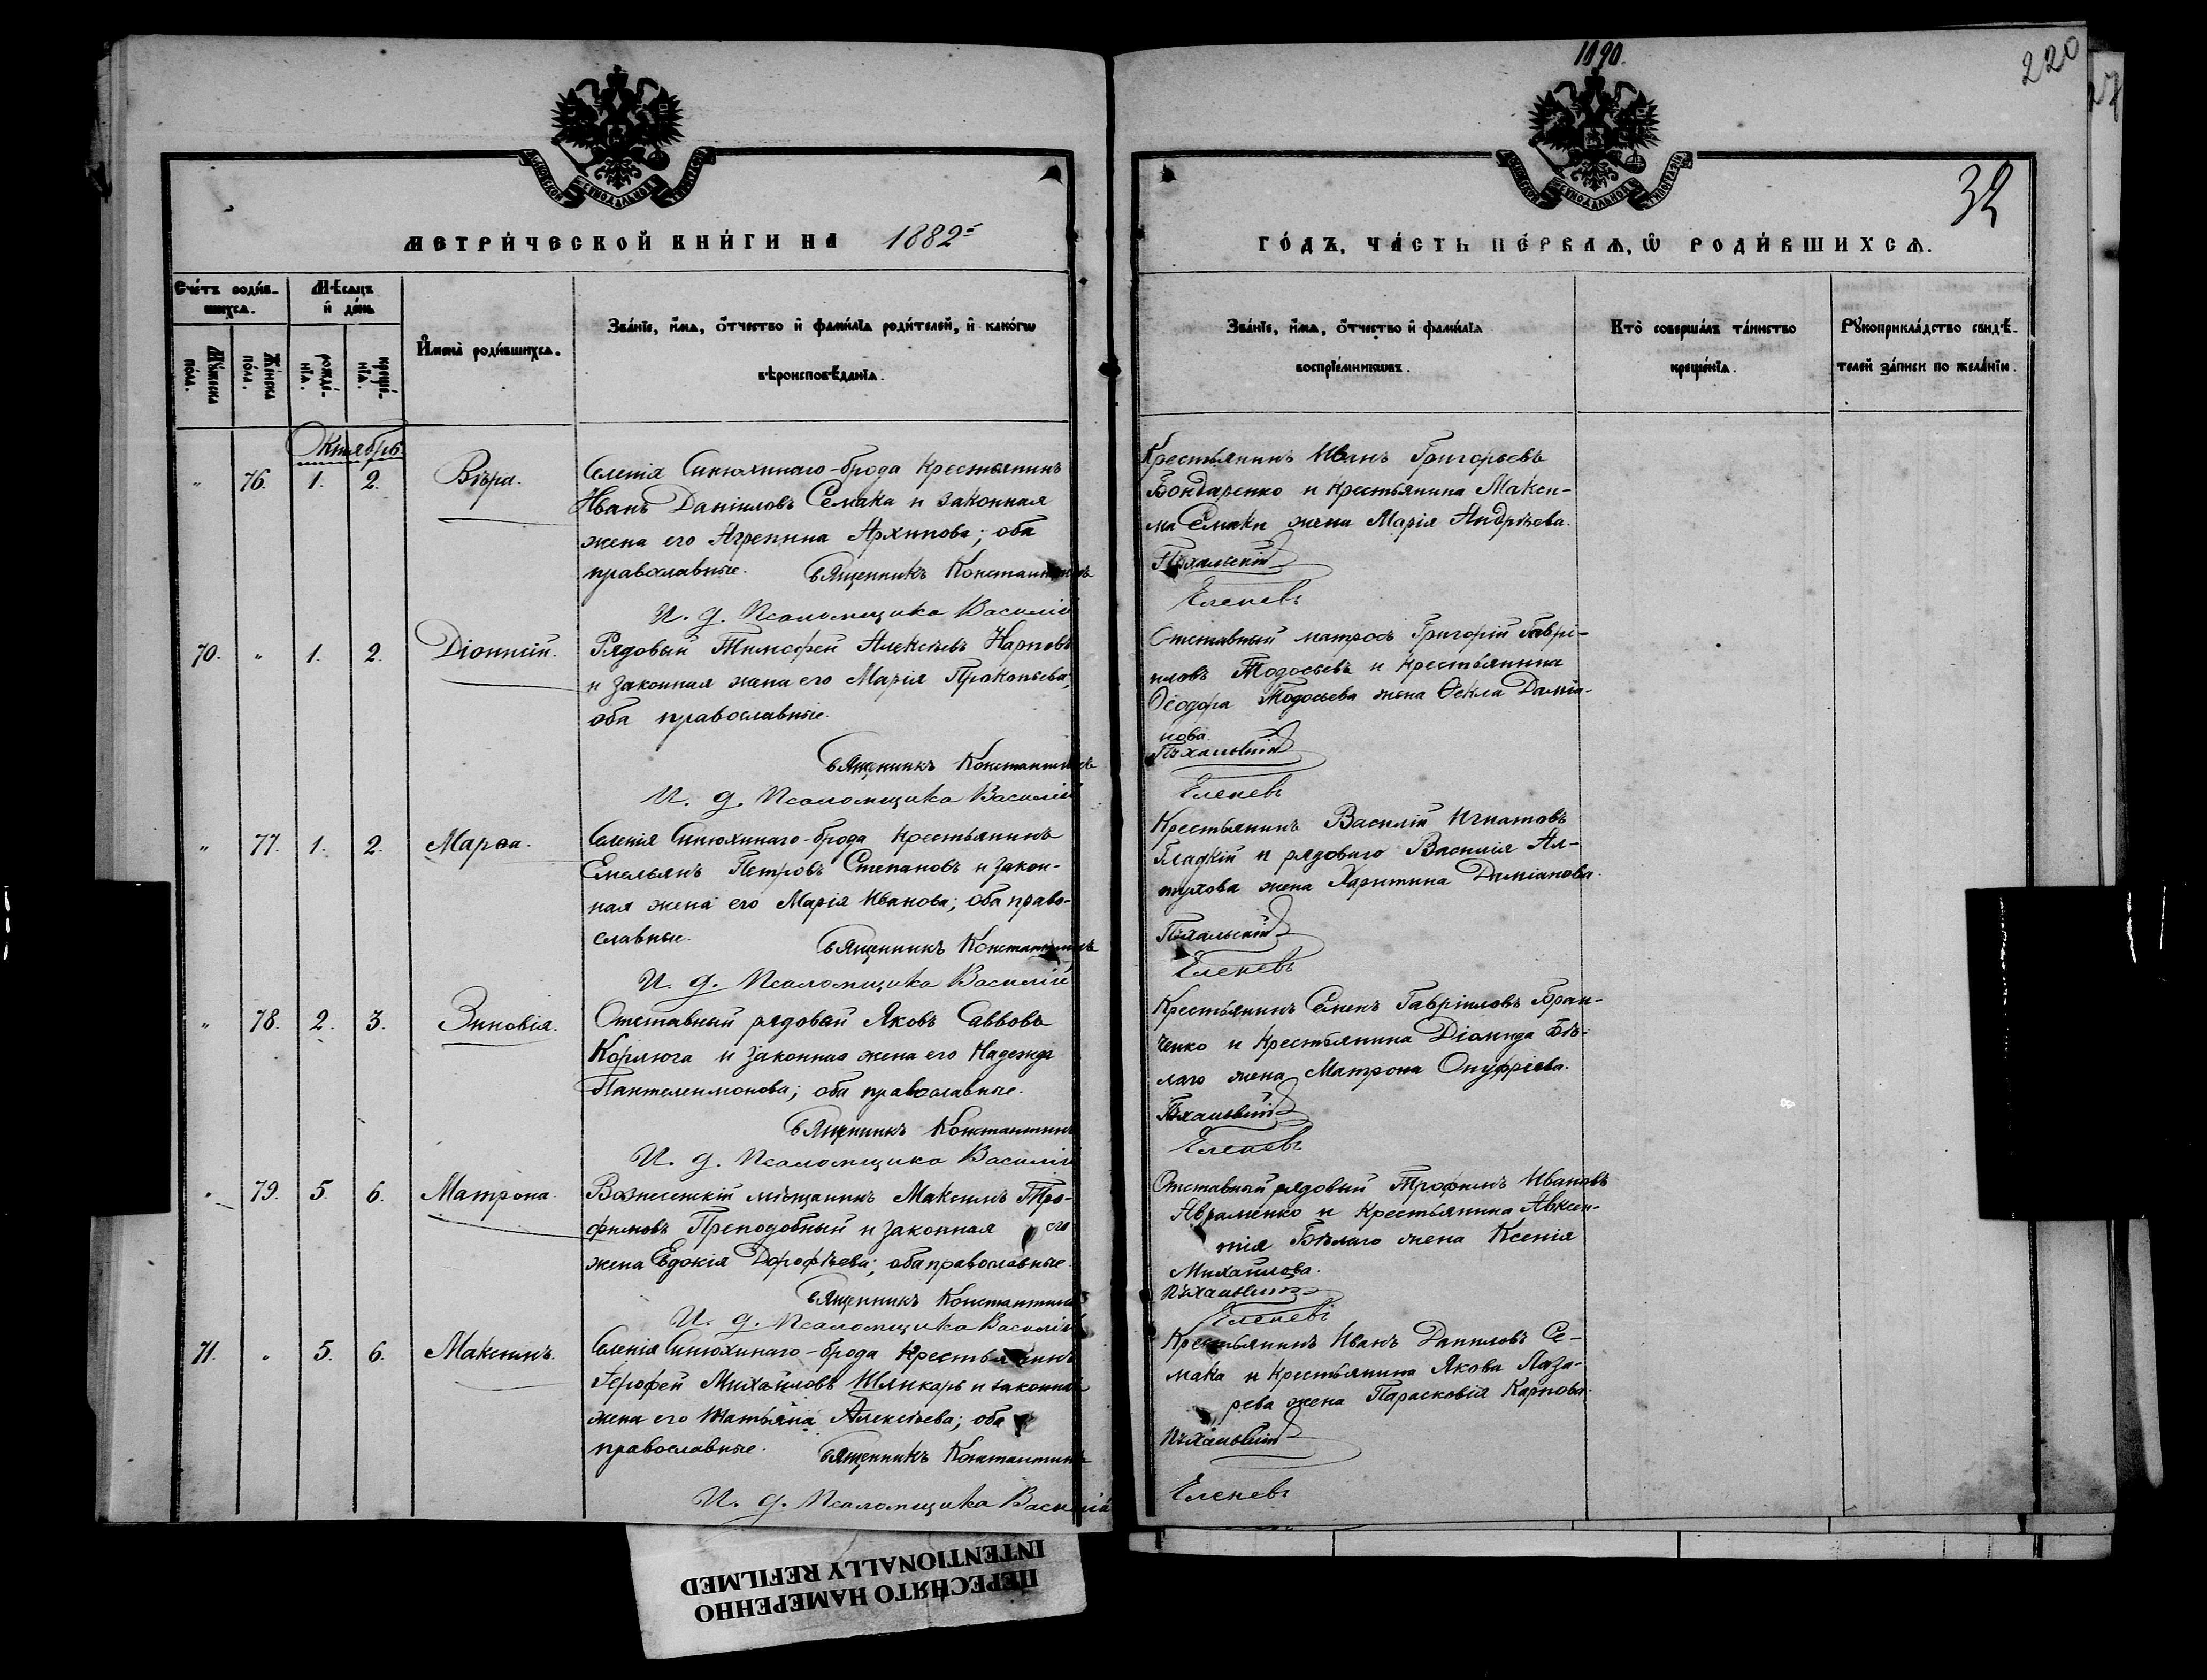 1890.
220
27
32
МОСКОВСКОЙ СѴНОДАЛЬНОЙ ТИПОГРАФІИ
МОСКОВСКОЙ СѴНОДАЛЬНОЙ ТИПОГРАФІИ
МЕТРИ́ЧЕСКОЙ КНИ́ГИ НА 1882й
ГО́ДЪ, ЧА́СТЬ ПЕ́РВАЯ, Ѡ РОДИ́ВШИХСЯ.
Сче́тъ роди́в-
шихся.
Мѣ́сяцъ
и҆ де́нь
Му́жеска
по́ла.
Же́нска
по́ла.
рожде́-
нїя.
креще́-
нїя.
И҆мена̀ роди́вшихся.
Зва́нїе, и҆́мя, ѻ҆́тчество и҆ фами́лїя роди́телей, и҆ како́гѡ
вѣроисповѣ́данїя.
Зва́нїе, и҆́мя, ѻ҆́тчество и҆ фами́лїя
воспрїе́мникѡвъ.
Кто̀ соверша́лъ та́инство
креще́нїя.
Рꙋкоприкла́дство свидѣ́-
телей за́писи по жела́нїю.
Октябрь
" 76. 1. 2. Вѣра.
Селенія Синюхинаго-брода крестьянинъ
Иванъ Даніиловъ Семака и законная
жена его Агрепина Архипова; оба
православные. Священникъ Константинъ
И. д. Псаломщика Василій
Крестьянинъ Иванъ Григорьевъ
Бондаренко и крестьянина Макси-
ма Семаки жена Марія Андрѣева.
Пѣхальскій
Еленевъ
70. " 1. 2. Діонисій.
Рядовый Тимофей Алексѣевъ Карповъ
и законная жена его Марія Прокопьева;
оба православные.
Священникъ Константинъ
И. д. Псаломщика Василій
Отставный матросъ Григорій Гаврі-
иловъ Тодосьевъ и крестьянина
Ѳеодора Тодосьева жена Ѳекла Даміа-
нова.
Пѣхальскій
Еленевъ
" 77. 1. 2. Марѳа.
Селенія Синюхинаго-брода крестьянинъ
Емельянъ Петровъ Степановъ и закон-
ная жена его Марія Иванова; оба право-
славные. Священникъ Константинъ
И. д. Псаломщика Василій
Крестьянинъ Василій Игнатовъ
Гладкій и рядоваго Василія Ал-
тухова жена Харитина Даміанова.
Пѣхальскій
Еленевъ
" 78. 2. 3. Зиновія.
Отставный рядовой Яковъ Саввовъ
Корлюга и законная жена его Надежда
Пантелеимонова; оба православные.
Священникъ Константинъ
И. д. Псаломщика Василій
Крестьянинъ Семенъ Гавріиловъ Бран-
ченко и крестьянина Діомида Бѣ-
лаго жена Матрона Онуфріева.
Пѣхальскій
Еленевъ
" 79. 5. 6. Матрона.
Вознесенскій мѣщанинъ Максимъ Тро-
фимовъ Преподобный и законная его
жена Евдокія Дорофѣева; оба православные.
Священникъ Константинъ
И. д. Псаломщика Василій
Отставный рядовый Трофимъ Ивановъ
Авраменко и крестьянина Авксен-
тія Бѣлаго жена Ксенія
Михайлова.
Пѣхальскій
Еленевъ
71. " 5. 6. Максимъ.
Селенія Синюхинаго-брода крестьянинъ
Ерофей Михайловъ Шликарь и законная
жена его Татьяна Алексѣева; оба
православные. Священникъ Константинъ
И. д. Псаломщика Василій
Крестьянинъ Иванъ Даниловъ Се-
мака и крестьянина Якова Лаза-
рева жена Парасковія Карпова.
Пѣхальскій
Еленевъ
ПЕРЕСНЯТО НАМЕРЕННО
INTENTIONALLY REFILMED